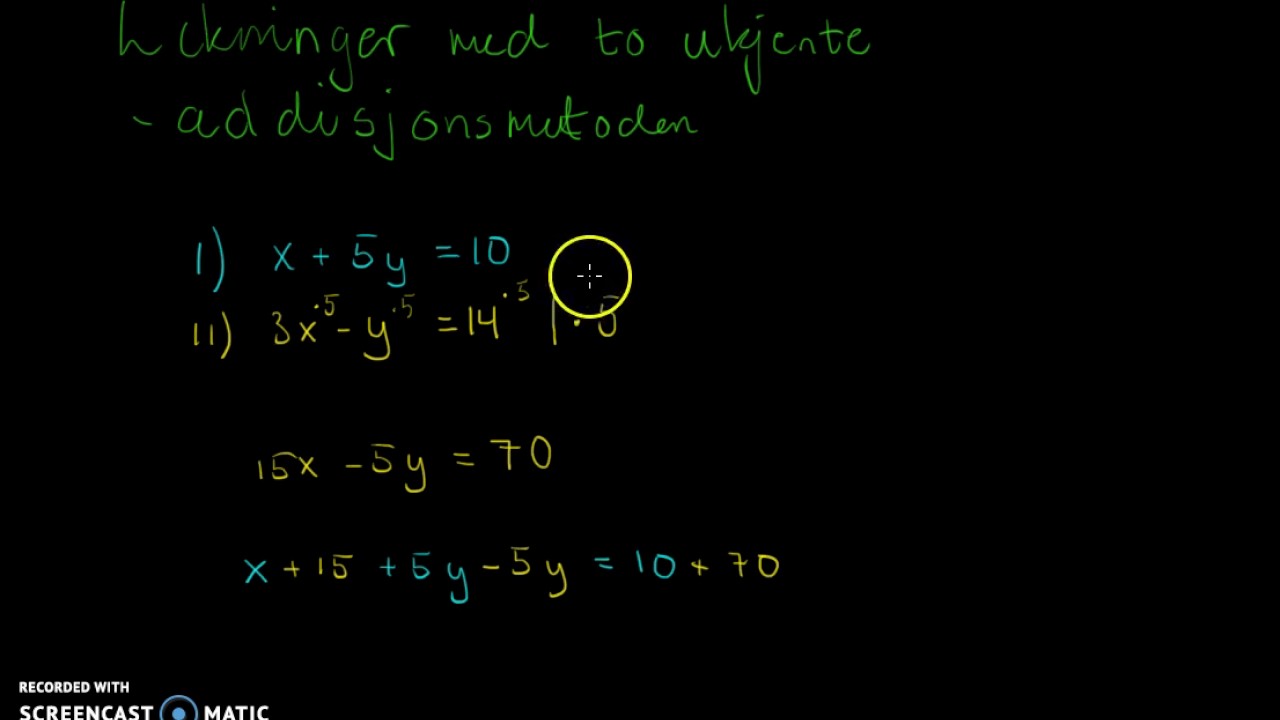 Likninger med to ukjente
- addisjonsmetoden
I) x + 5y = 10
II) 3x·5 - y·5 = 14·5 | · 5
15x - 5y = 70
x + 15 + 5y - 5y = 10 + 70
RECORDED WITH
SCREENCAST MATIC